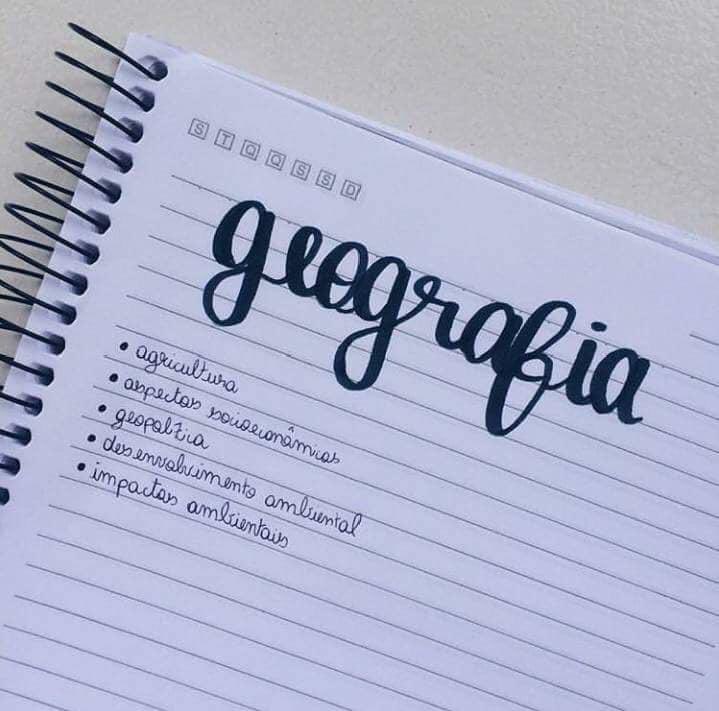 S T Q Q S S D
geografia
• agricultura
• aspectos socioeconômicos
• geopolítica
• desenvolvimento ambiental
• impactos ambientais